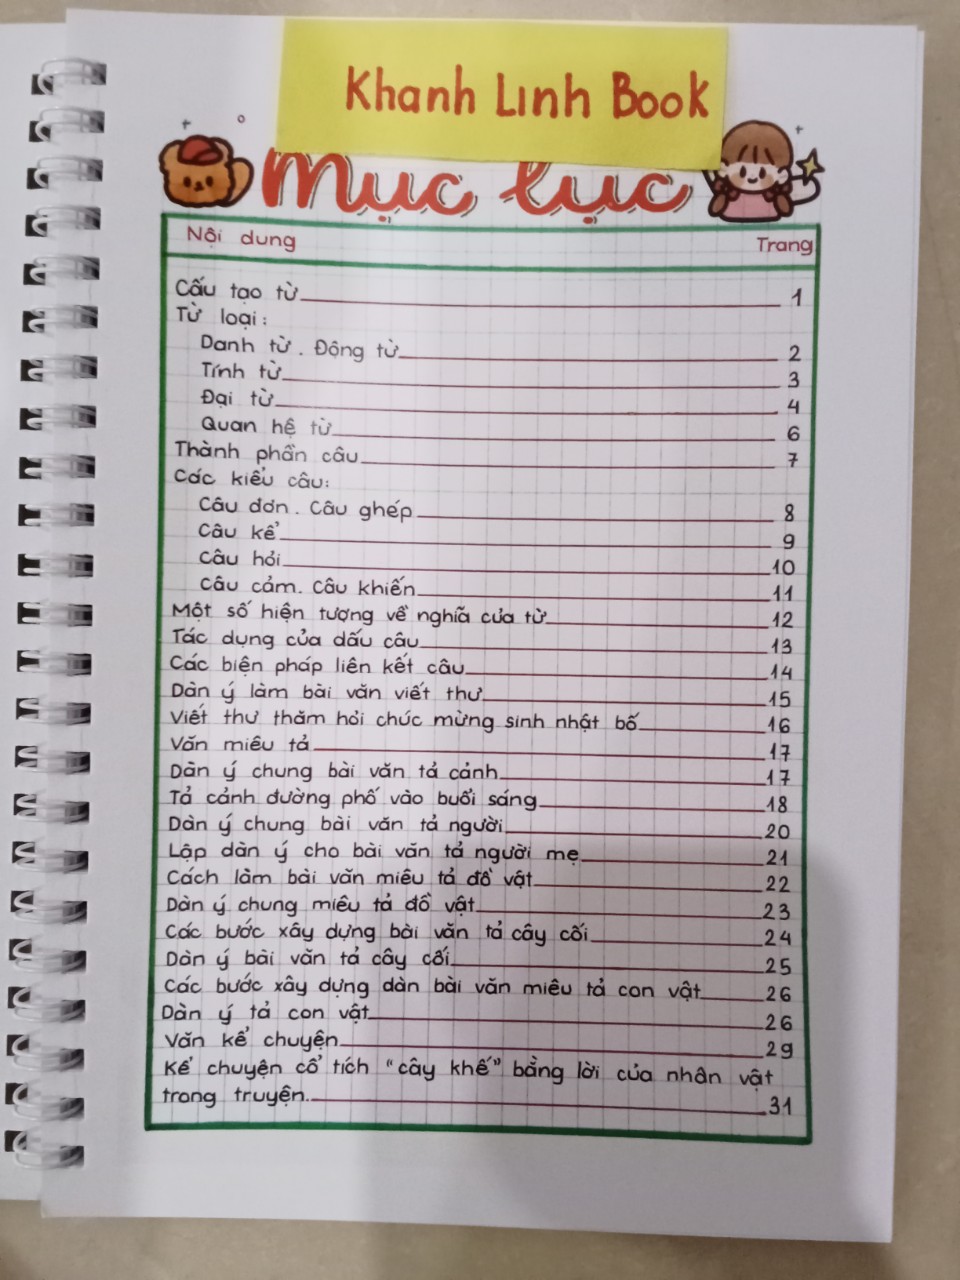 Khanh Linh Book
Mục lục
Nội dung Trang
Cấu tạo từ 1
Từ loại:
Danh từ. Động từ 2
Tính từ 3
Đại từ 4
Quan hệ từ 6
Thành phần câu 7
Các kiểu câu:
Câu đơn. Câu ghép 8
Câu kể 9
Câu hỏi 10
Câu cảm. Câu khiến 11
Một số hiện tượng về nghĩa của từ 12
Tác dụng của dấu câu 13
Các biện pháp liên kết câu 14
Dàn ý làm bài văn viết thư 15
Viết thư thăm hỏi chúc mừng sinh nhật bố 16
Văn miêu tả 17
Dàn ý chung bài văn tả cảnh 17
Tả cảnh đường phố vào buổi sáng 18
Dàn ý chung bài văn tả người 20
Lập dàn ý cho bài văn tả người mẹ 21
Cách làm bài văn miêu tả đồ vật 22
Dàn ý chung miêu tả đồ vật 23
Các bước xây dựng bài văn tả cây cối 24
Dàn ý bài văn tả cây cối 25
Các bước xây dựng dàn bài văn miêu tả con vật 26
Dàn ý tả con vật 26
Văn kể chuyện 29
Kể chuyện cổ tích "cây khế" bằng lời của nhân vật
trong truyện. 31